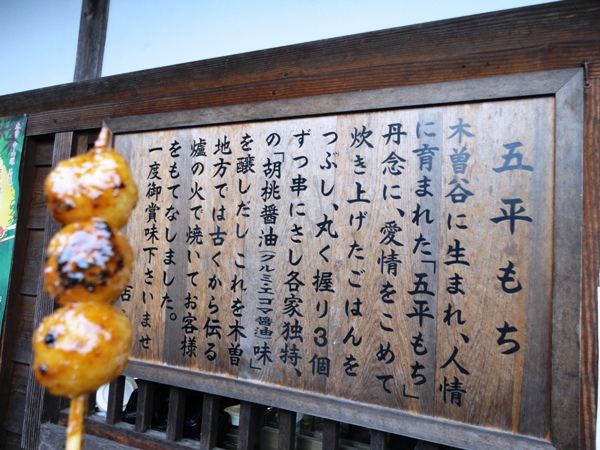 五平もち
木曽谷に生まれ、人情
に育まれた「五平もち」
丹念に、愛情をこめて
炊き上げたごはんを
つぶし、丸く握り3個
ずつ串にさし各家独特、
の「胡桃醤油(クルミ・エゴマ醤油)味」
を醸しだし これを木曽
地方では古くから伝る
爐の火で焼いてお客様
をもてなしました。
一度御賞味下さいませ
店